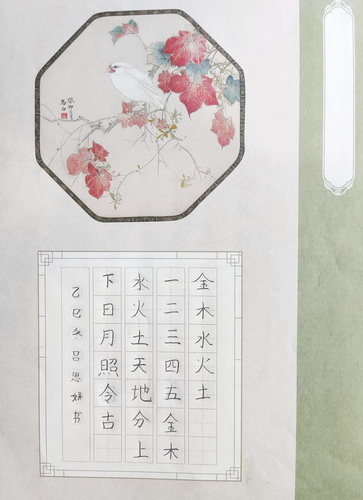 金木水火土
一二三四五金木
水火土天地分上
下日月照今古
乙巳冬吕思妍书